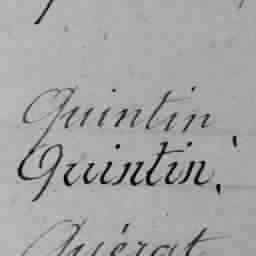 Quintin
Quintin.
Guérat